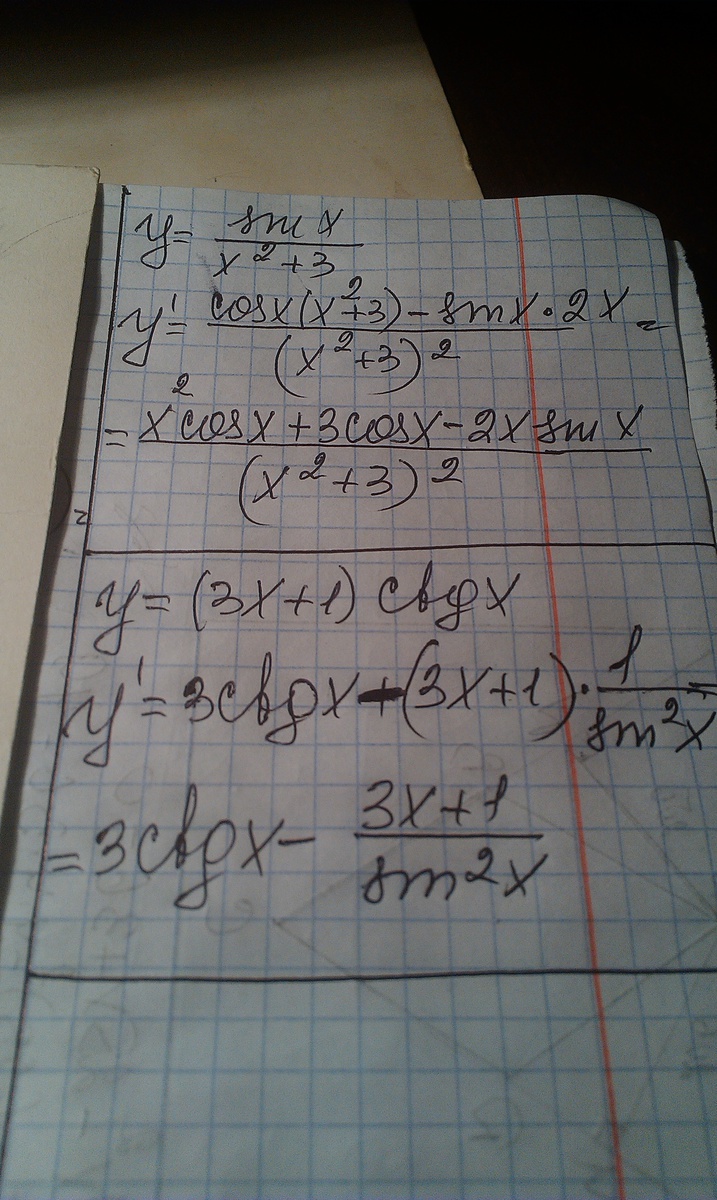 y = sin x / x² + 3
y' = cos x (x² + 3) - sin x · 2x / (x² + 3)² =
= x² cos x + 3 cos x - 2x sin x / (x² + 3)²
y = (3x + 1) ctg x
y' = 3 ctg x - (3x + 1) · 1 / sin² x =
= 3 ctg x - 3x + 1 / sin² x